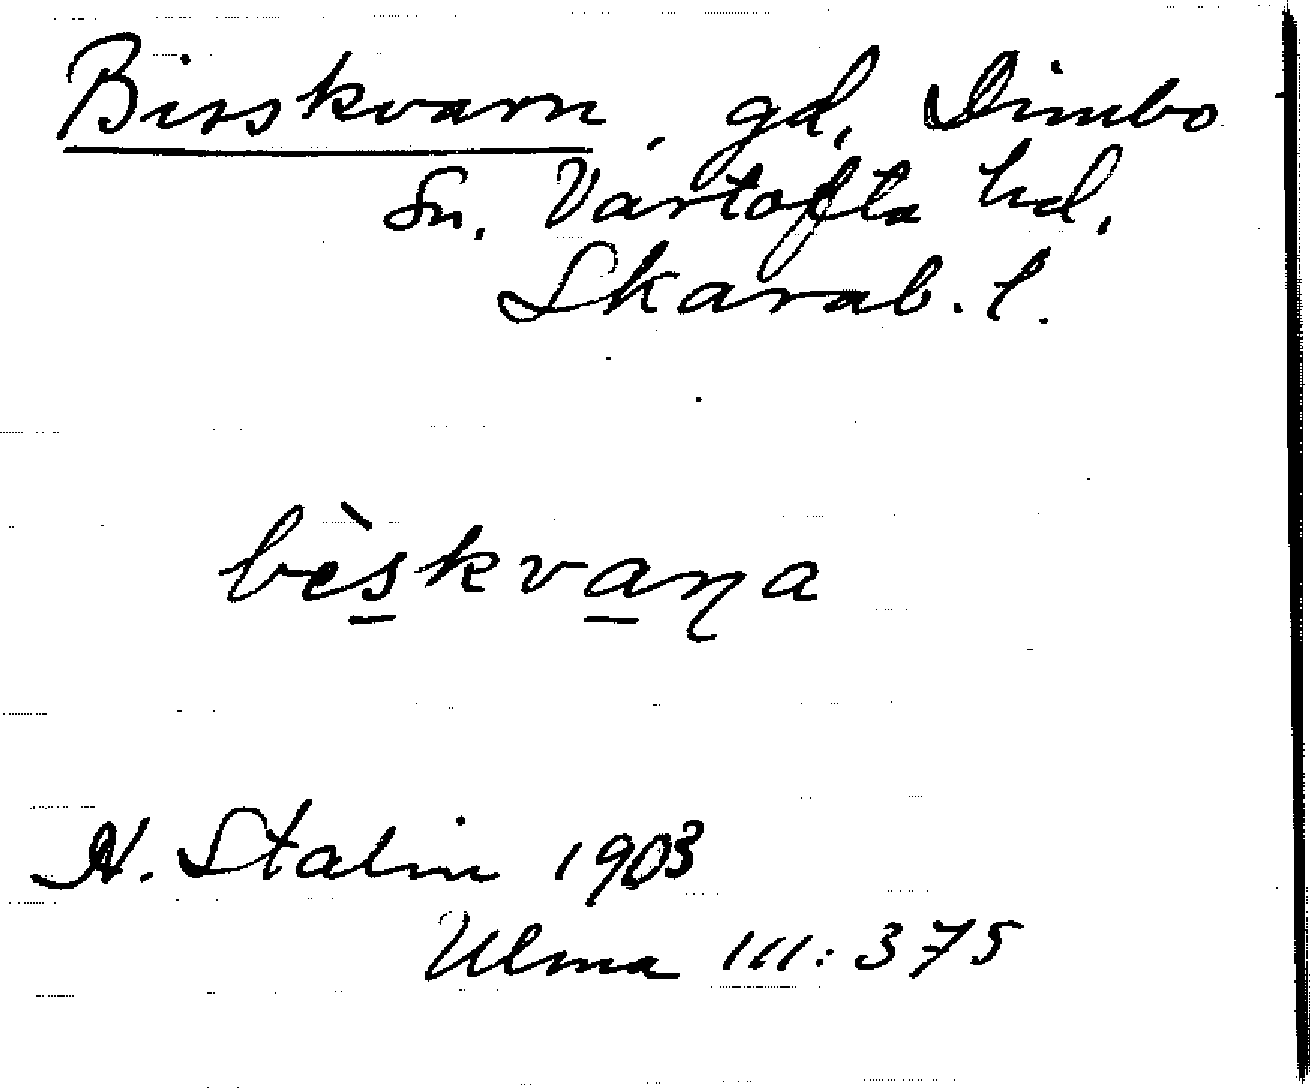 Birskvarn, gd, Dimbo
sn, Vartofta hd,
Skarab. l.
bèskvaṇa
H. Stalin 1903
Ulma 111:375